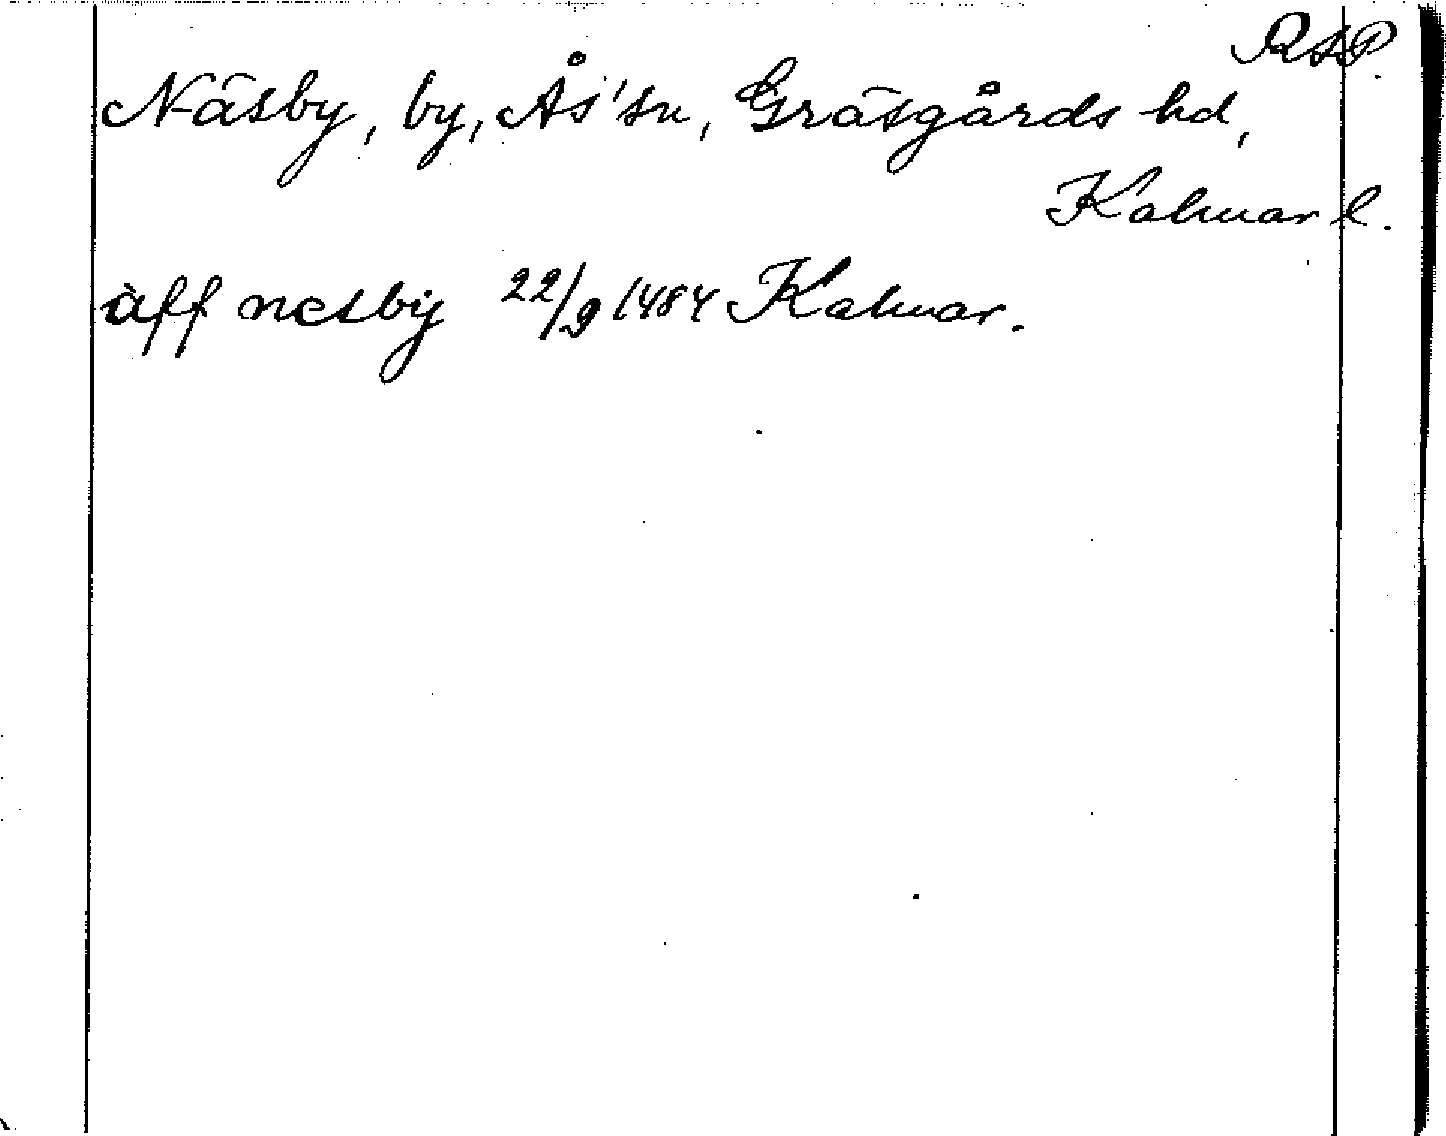 RAP.
Näsby, by, Ås' sn, Gräsgårds hd,
Kalmar l.
àff nesbÿ 22/9 1484 Kalmar.